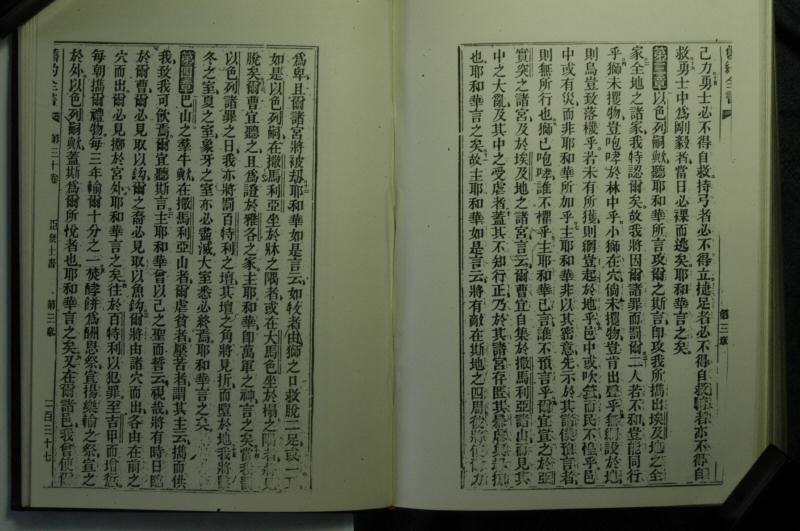 舊約全書
第三章
己力勇士必不得自救持弓者必不得立捷足者必不得自救騎者亦不得自
救勇士中爲剛毅者當日必裸而逃矣耶和華言之矣
第三章以色列嗣歟聽耶和華所言攻爾之斯言卽攻我所攜出埃及地之全
家全地之諸家我特認爾矣故我將因爾諸罪而罰爾二人若不和豈能同行
乎獅未攫物豈咆哮於林中乎小獅在穴倘未攫物豈肯出聲乎無網設於地
則鳥豈致落機乎若未有所獲則網豈起於地乎邑中或吹號而民不懼乎邑
中或有災而非耶和華所加乎主耶和華非以其密意先示於其諸僕預言者
則無所行也獅已咆哮誰不懼乎主耶和華已言誰不預言乎爾宜宣之於亞
實突之諸宮及於埃及地之諸宮言云爾曹宜自集於撒馬利亞諸山而見其
中之大亂及其中之受虐者蓋其不知行正乃於其諸宮存匿其暴虐
也耶和華言之矣故主耶和華如是言云將有敵在斯地之四周
爲卑且爾諸宮將被刼耶和華如是言云如牧者由獅之口救脫二足或一
如是以色列嗣在撒馬利亞坐於牀之隅者或在大馬色坐於榻之隅者
脫矣爾曹宜聽之且爲證於雅各之家主耶和華卽萬軍之神言之矣當我
以色列諸罪之日我亦將罰百特利之壇其壇之角將見折而墮於地我將
冬之室夏之室象牙之室亦必盡滅大室悉必終焉耶和華言之矣
第四章巴山之羣牛歟在撒馬利亞山者爾虐貧者壓苦者謂其主云攜而供
我致我可飲焉爾宜聽斯言主耶和華曾以己之聖而誓云視哉將有時日臨
於爾曹爾必見取以鈎爾之裔必見取以魚鈎爾將由諸穴而出各由在前之
穴而出爾必見擲於宮外耶和華言之矣往於百特利以犯罪至吉甲而增愆
每朝攜爾禮物每三年輸爾十分之一焚酵餅爲酬恩祭宜揚樂輸之祭宣之
於外以色列嗣歟蓋斯爲爾所悅者也耶和華言之矣又在爾諸邑我曾使
舊約全書
第三十卷
亞麼士書
第三章
一百三十七